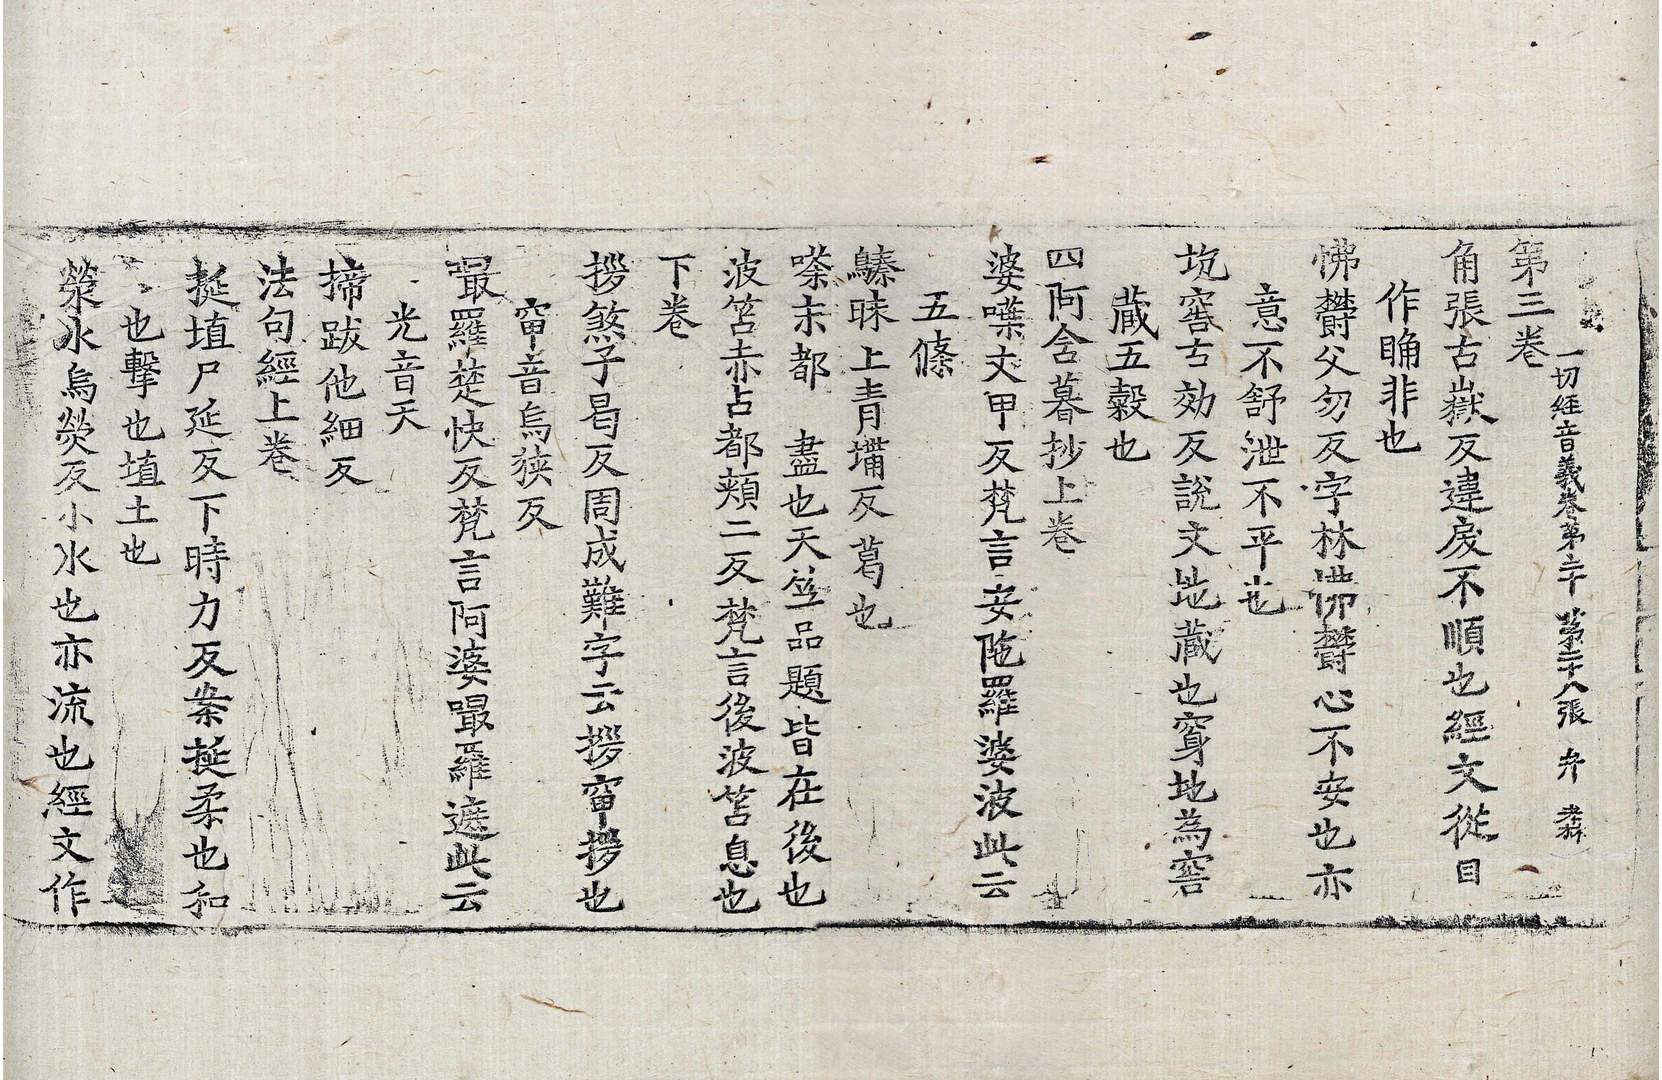 一切經音義卷第二十 第二十八張 弁
第三卷
角張古嶽反違戾不順也經文從目
作䀶非也
怫欝父勿反字林怫欝心不安也亦
意不舒泄不平也
坑窖古効反說文地藏也穿地為窖
藏五穀也
四阿含暮抄上卷
婆㗼丈甲反梵言安陁羅婆波此云
五絛
昧上青壩反葛也
嗏末都 盡也天竺品題皆在後也
波笘赤占都頰二反梵言後波笘息也
下卷
撈煞子曷反周成難字云撈窜撈也
窜音烏狹反
嘬羅楚快反梵言阿婆嘬羅遮此云
光音天
揥跋他細反
法句經上卷
挻埴尸延反下時力反案挻柔也和
也擊也埴土也
滎水烏熒反小水也亦流也經文作